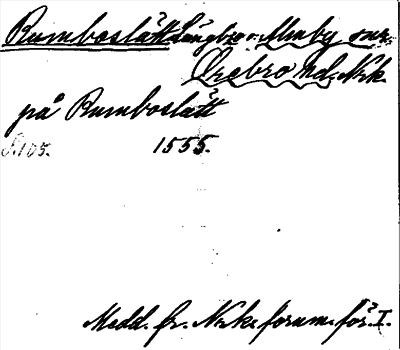 Rumboslätt Längbro o. Almby snr.
Örebro hd. Nrk.
på Rumboslätt
S. 105. 1555.
Medd. fr. Nrkes fornm. för. I.